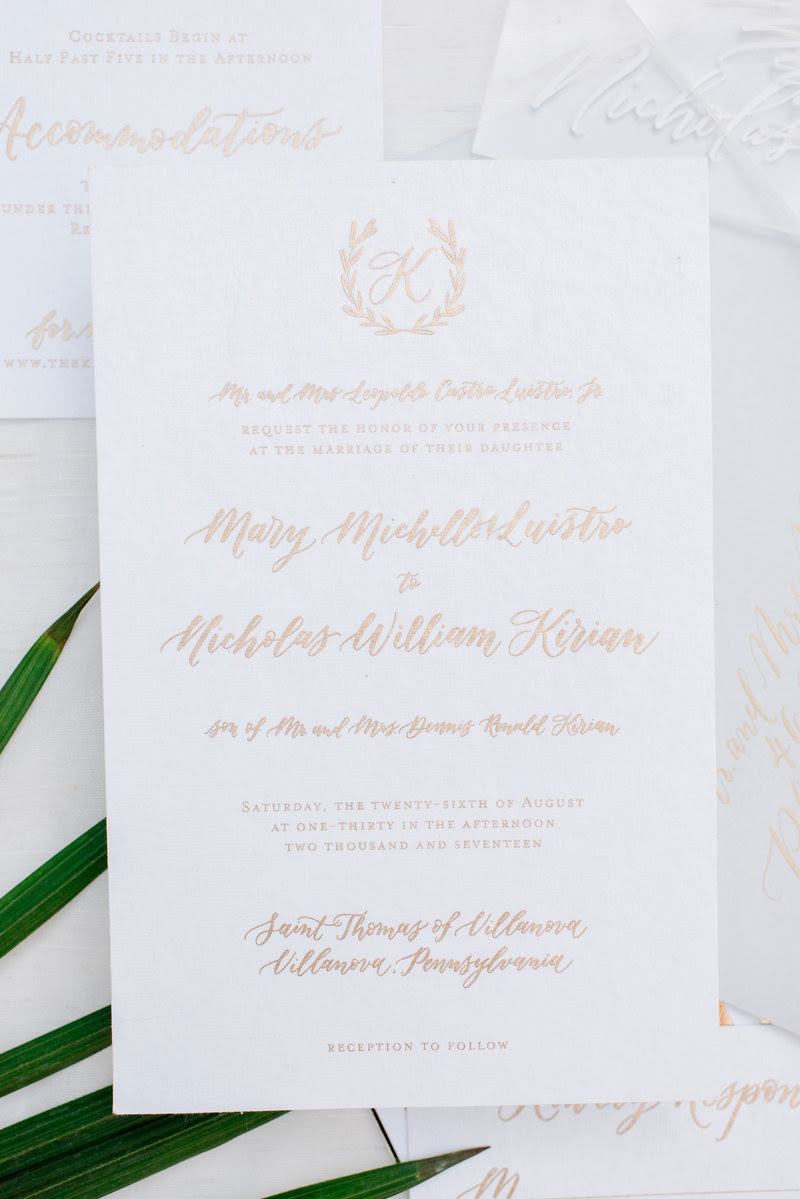 Cocktails Begin at
Half Past Five in the Afternoon
Accommodations
under
www.thek
Nicholas
K
Mr and Mrs Leopoldo Castro Luistro, Jr
request the honor of your presence
at the marriage of their daughter
Mary Michelle Luistro
to
Nicholas William Kirian
son of Mr and Mrs. Dennis Ronald Kirian
Saturday, the twenty-sixth of August
at one-thirty in the afternoon
two thousand and seventeen
Saint Thomas of Villanova
Villanova, Pennsylvania
reception to follow
and Mrs